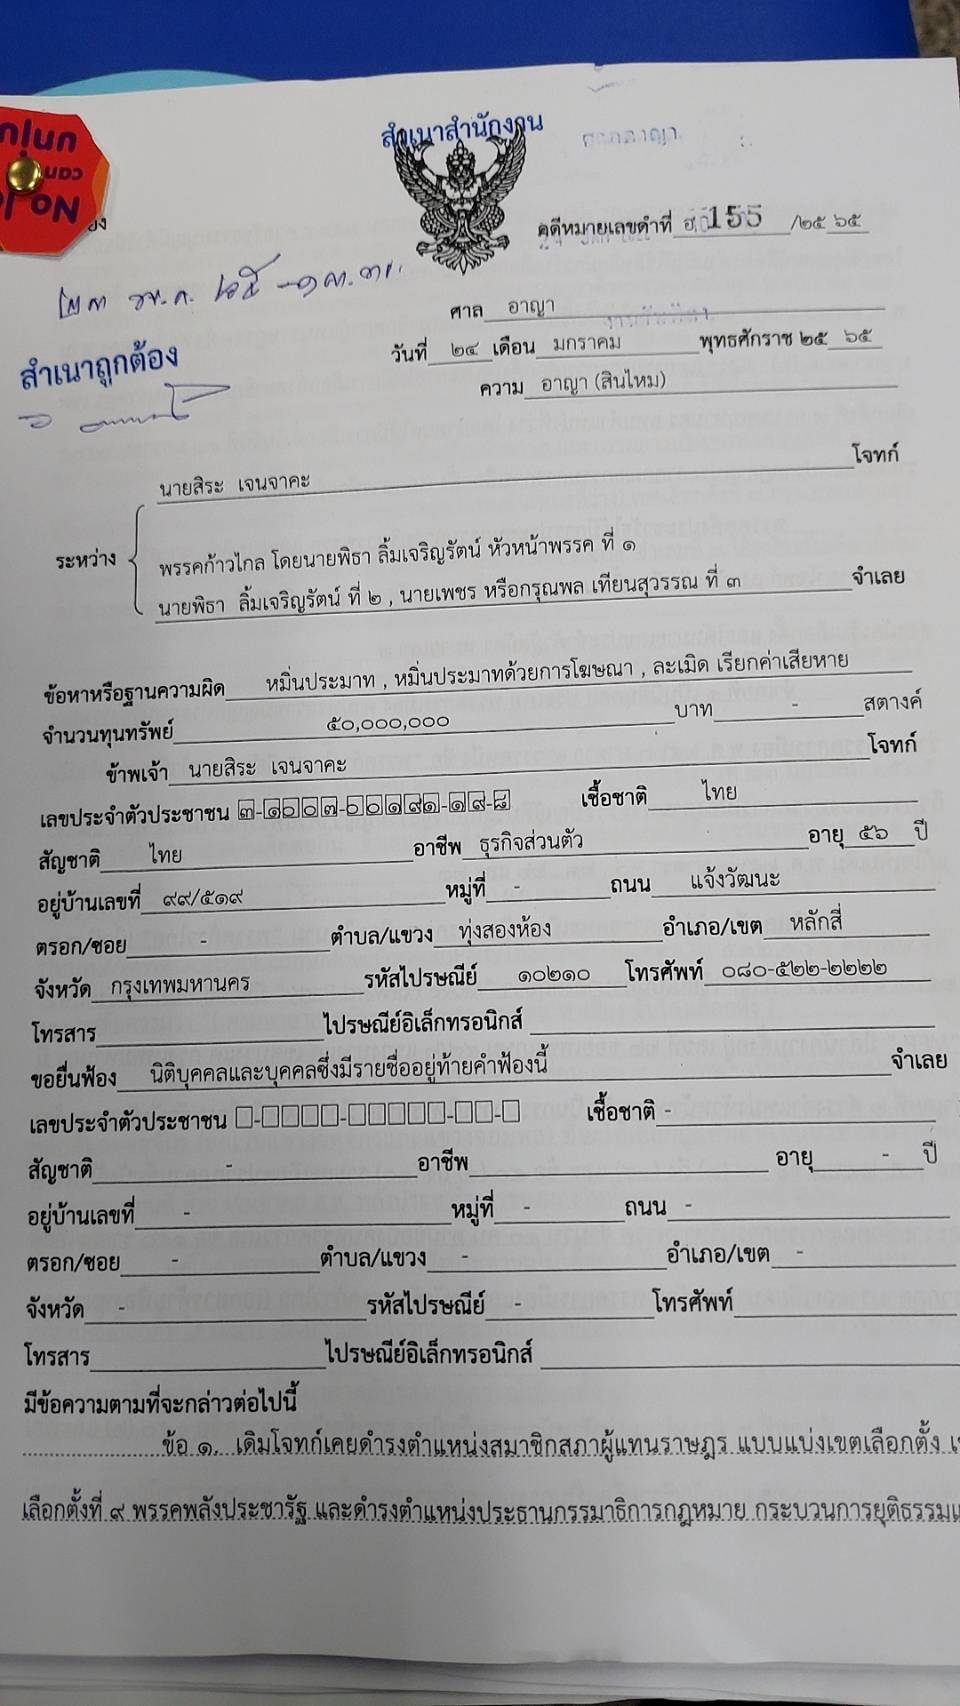 สำเนาสำนักงาน
คดีหมายเลขดำที่ อ.155 /๒๕ ๖๕
ศาล อาญา
สำเนาถูกต้อง
วันที่ ๒๔ เดือน มกราคม พุทธศักราช ๒๕ ๖๕
ความ อาญา (สินไหม)
นายสิระ เจนจาคะ โจทก์
ระหว่าง
พรรคก้าวไกล โดยนายพิธา ลิ้มเจริญรัตน์ หัวหน้าพรรค ที่ ๑
นายพิธา ลิ้มเจริญรัตน์ ที่ ๒ , นายเพชร หรือกรุณพล เทียนสุวรรณ ที่ ๓ จำเลย
ข้อหาหรือฐานความผิด หมิ่นประมาท , หมิ่นประมาทด้วยการโฆษณา , ละเมิด เรียกค่าเสียหาย
จำนวนทุนทรัพย์ ๕๐,๐๐๐,๐๐๐ บาท - สตางค์
ข้าพเจ้า นายสิระ เจนจาคะ โจทก์
เลขประจำตัวประชาชน ๓-๑๐๐๓-๐๐๑๙๑-๑๙-๘ เชื้อชาติ ไทย
สัญชาติ ไทย อาชีพ ธุรกิจส่วนตัว อายุ ๕๖ ปี
อยู่บ้านเลขที่ ๙๙/๕๑๙ หมู่ที่ - ถนน แจ้งวัฒนะ
ตรอก/ซอย - ตำบล/แขวง ทุ่งสองห้อง อำเภอ/เขต หลักสี่
จังหวัด กรุงเทพมหานคร รหัสไปรษณีย์ ๑๐๒๑๐ โทรศัพท์ ๐๘๐-๕๒๒-๒๒๒๒
โทรสาร ไปรษณีย์อิเล็กทรอนิกส์
ขอยื่นฟ้อง นิติบุคคลและบุคคลซึ่งมีรายชื่ออยู่ท้ายคำฟ้องนี้ จำเลย
เลขประจำตัวประชาชน เชื้อชาติ -
สัญชาติ - อาชีพ อายุ - ปี
อยู่บ้านเลขที่ - หมู่ที่ - ถนน -
ตรอก/ซอย - ตำบล/แขวง - อำเภอ/เขต -
จังหวัด - รหัสไปรษณีย์ - โทรศัพท์
โทรสาร ไปรษณีย์อิเล็กทรอนิกส์
มีข้อความตามที่จะกล่าวต่อไปนี้
ข้อ ๑. เดิมโจทก์เคยดำรงตำแหน่งสมาชิกสภาผู้แทนราษฎร แบบแบ่งเขตเลือกตั้ง
เลือกตั้งที่ ๙ พรรคพลังประชารัฐ และดำรงตำแหน่งประธานกรรมาธิการกฎหมาย กระบวนการยุติธรรม